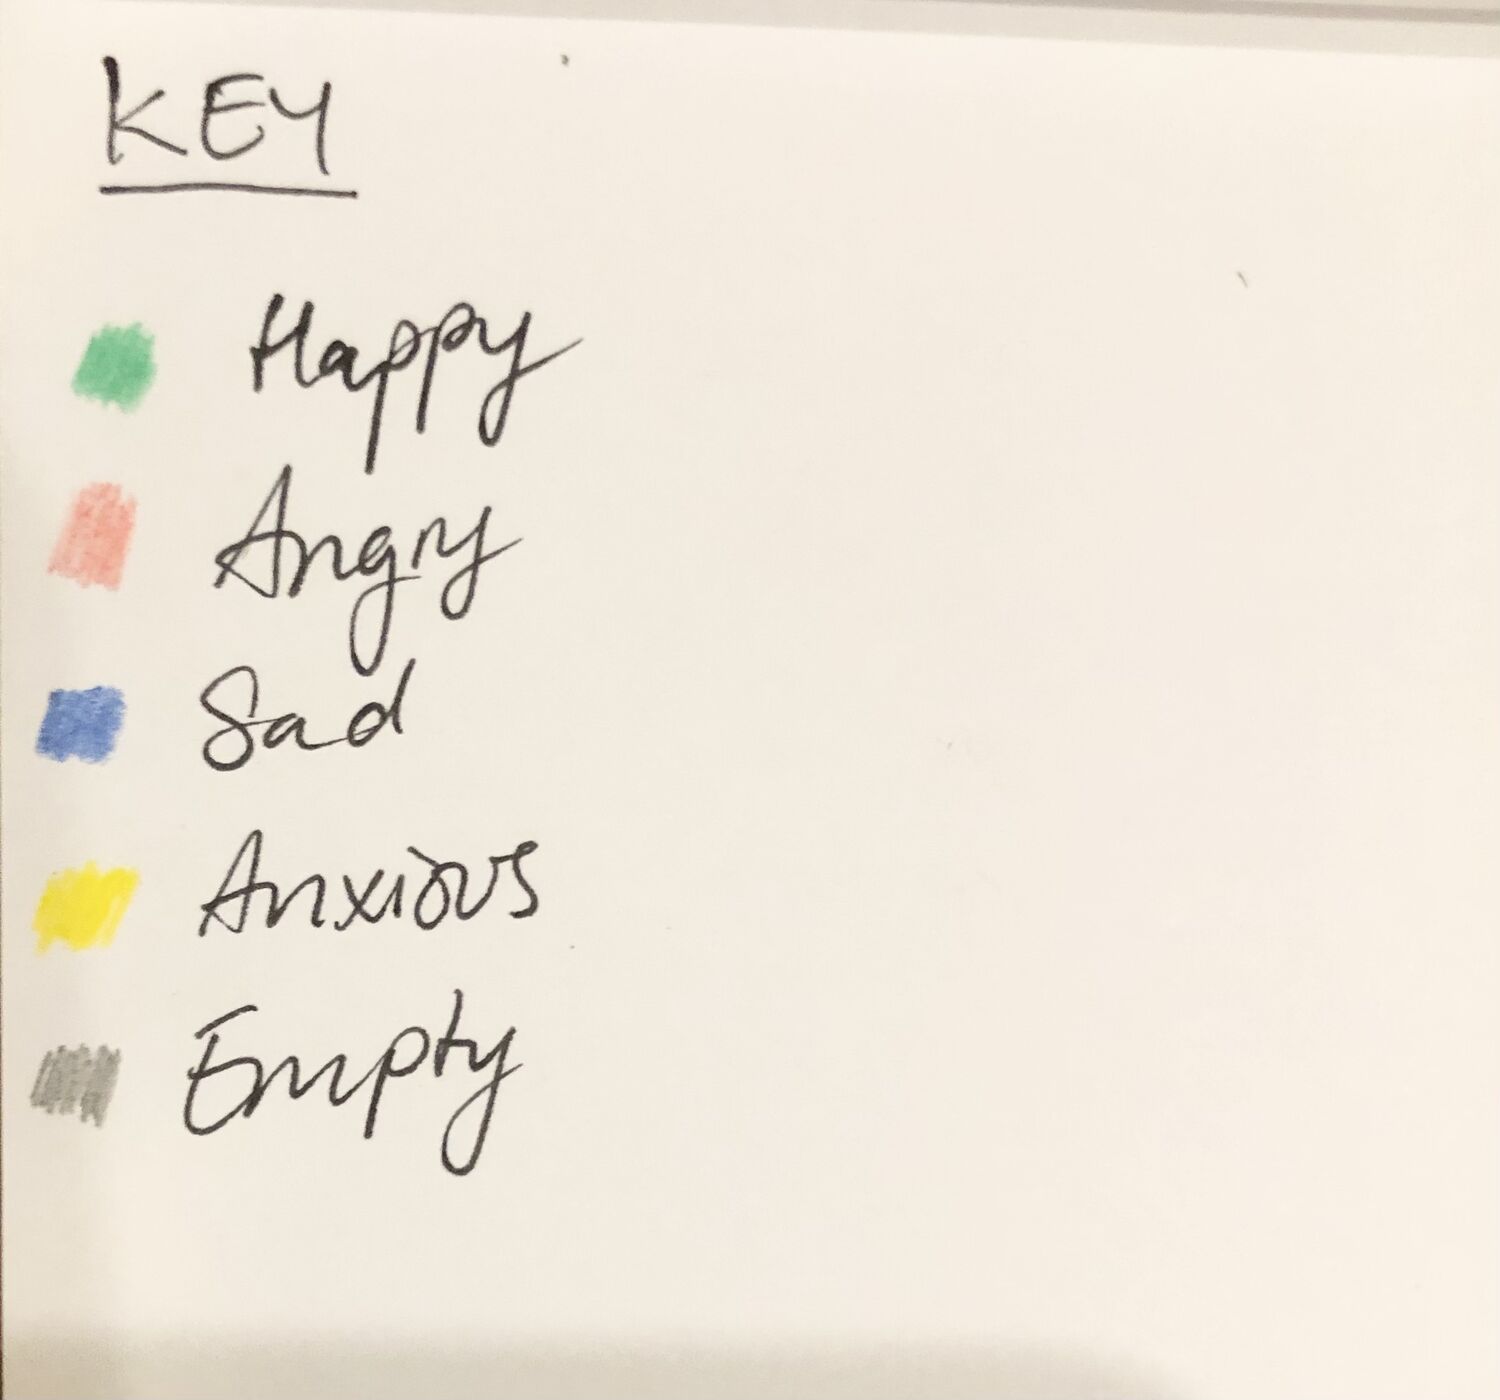 KEY
Happy
Angry
Sad
Anxious
Empty